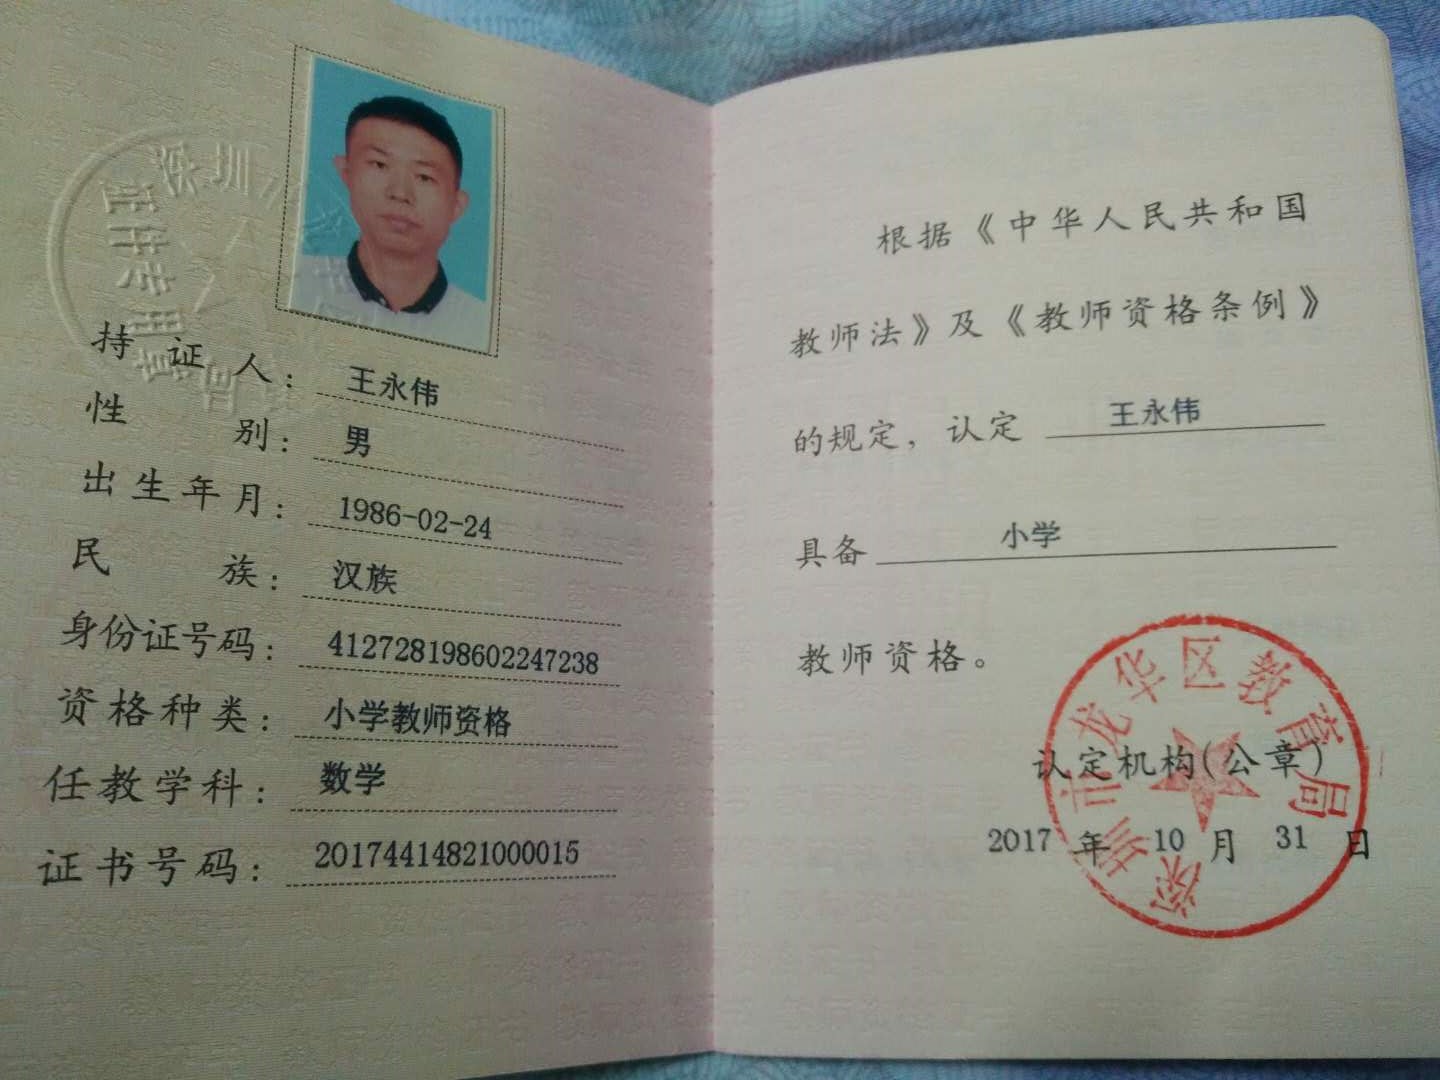 持证人：王永伟
性别：男
出生年月：1986-02-24
民族：汉族
身份证号码：412728198602247238
资格种类：小学教师资格
任教学科：数学
证书号码：20174414821000015
根据《中华人民共和国
教师法》及《教师资格条例》
的规定，认定 王永伟
具备 小学
教师资格。
深圳市龙华区教育局
认定机构(公章)
2017 年 10 月 31 日